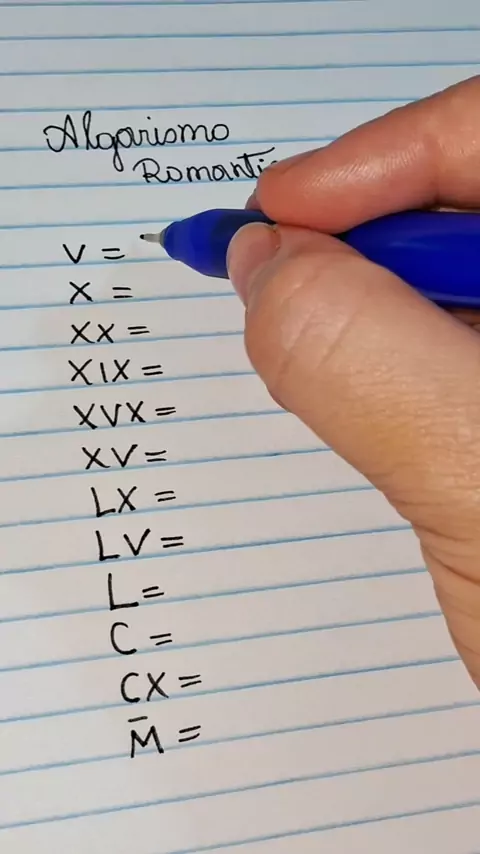 Algarismo
Romanti
V =
X =
XX =
XIX =
XVX =
XV =
LX =
LV =
L =
C =
CX =
M̅ =